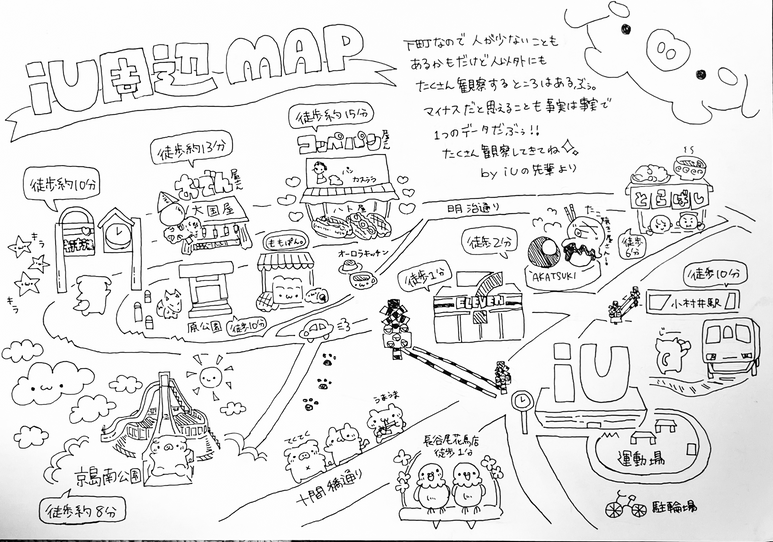 iU周辺MAP
下町なので人が少ないことも
あるかもだけど人以外にも
たくさん観察するところはあるぶぅ。
マイナスだと思えることも事実は事実で
1つのデータだぶぅ!!
たくさん観察してきてね。
by iUの先輩より
徒歩約10分
キラ
キラ
徒歩約13分
おでん屋さん
大国屋
徒歩約15分
コッペパン屋さん
パン
カステラ
ハト屋
明治通り
ももぱん。
オーロラキッチン
原公園
徒歩10分
徒歩1分
徒歩2分
ELEVEN
たこ焼き屋さん!
AKATSUKI
徒歩6分
小村井駅
徒歩10分
じー
iU
運動場
駐輪場
京島南公園
徒歩約8分
てくてく
うまうま
十間橋通り
長谷尾花鳥店
徒歩1分